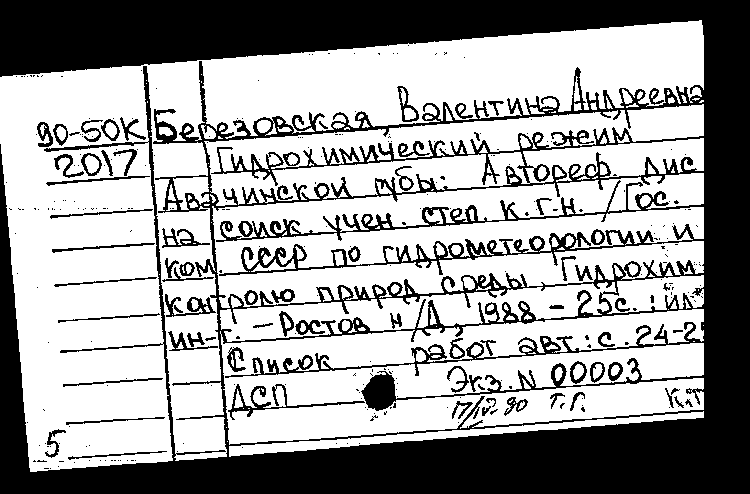 90-50К Березовская, Валентина Андреевна
2017 Гидрохимический режим
Авачинской губы: Автореф. дис
на соиск. учен. степ. к.г.н. / Гос.
ком. СССР по гидрометеорологии и
контролю природ. среды, Гидрохим
ин-т. - Ростов н/Д, 1988 - 25с. : ил
Список работ авт.: с. 24-25
ДСП Экз. N 00003
17/IV-90 Т.Г. К.Т
5